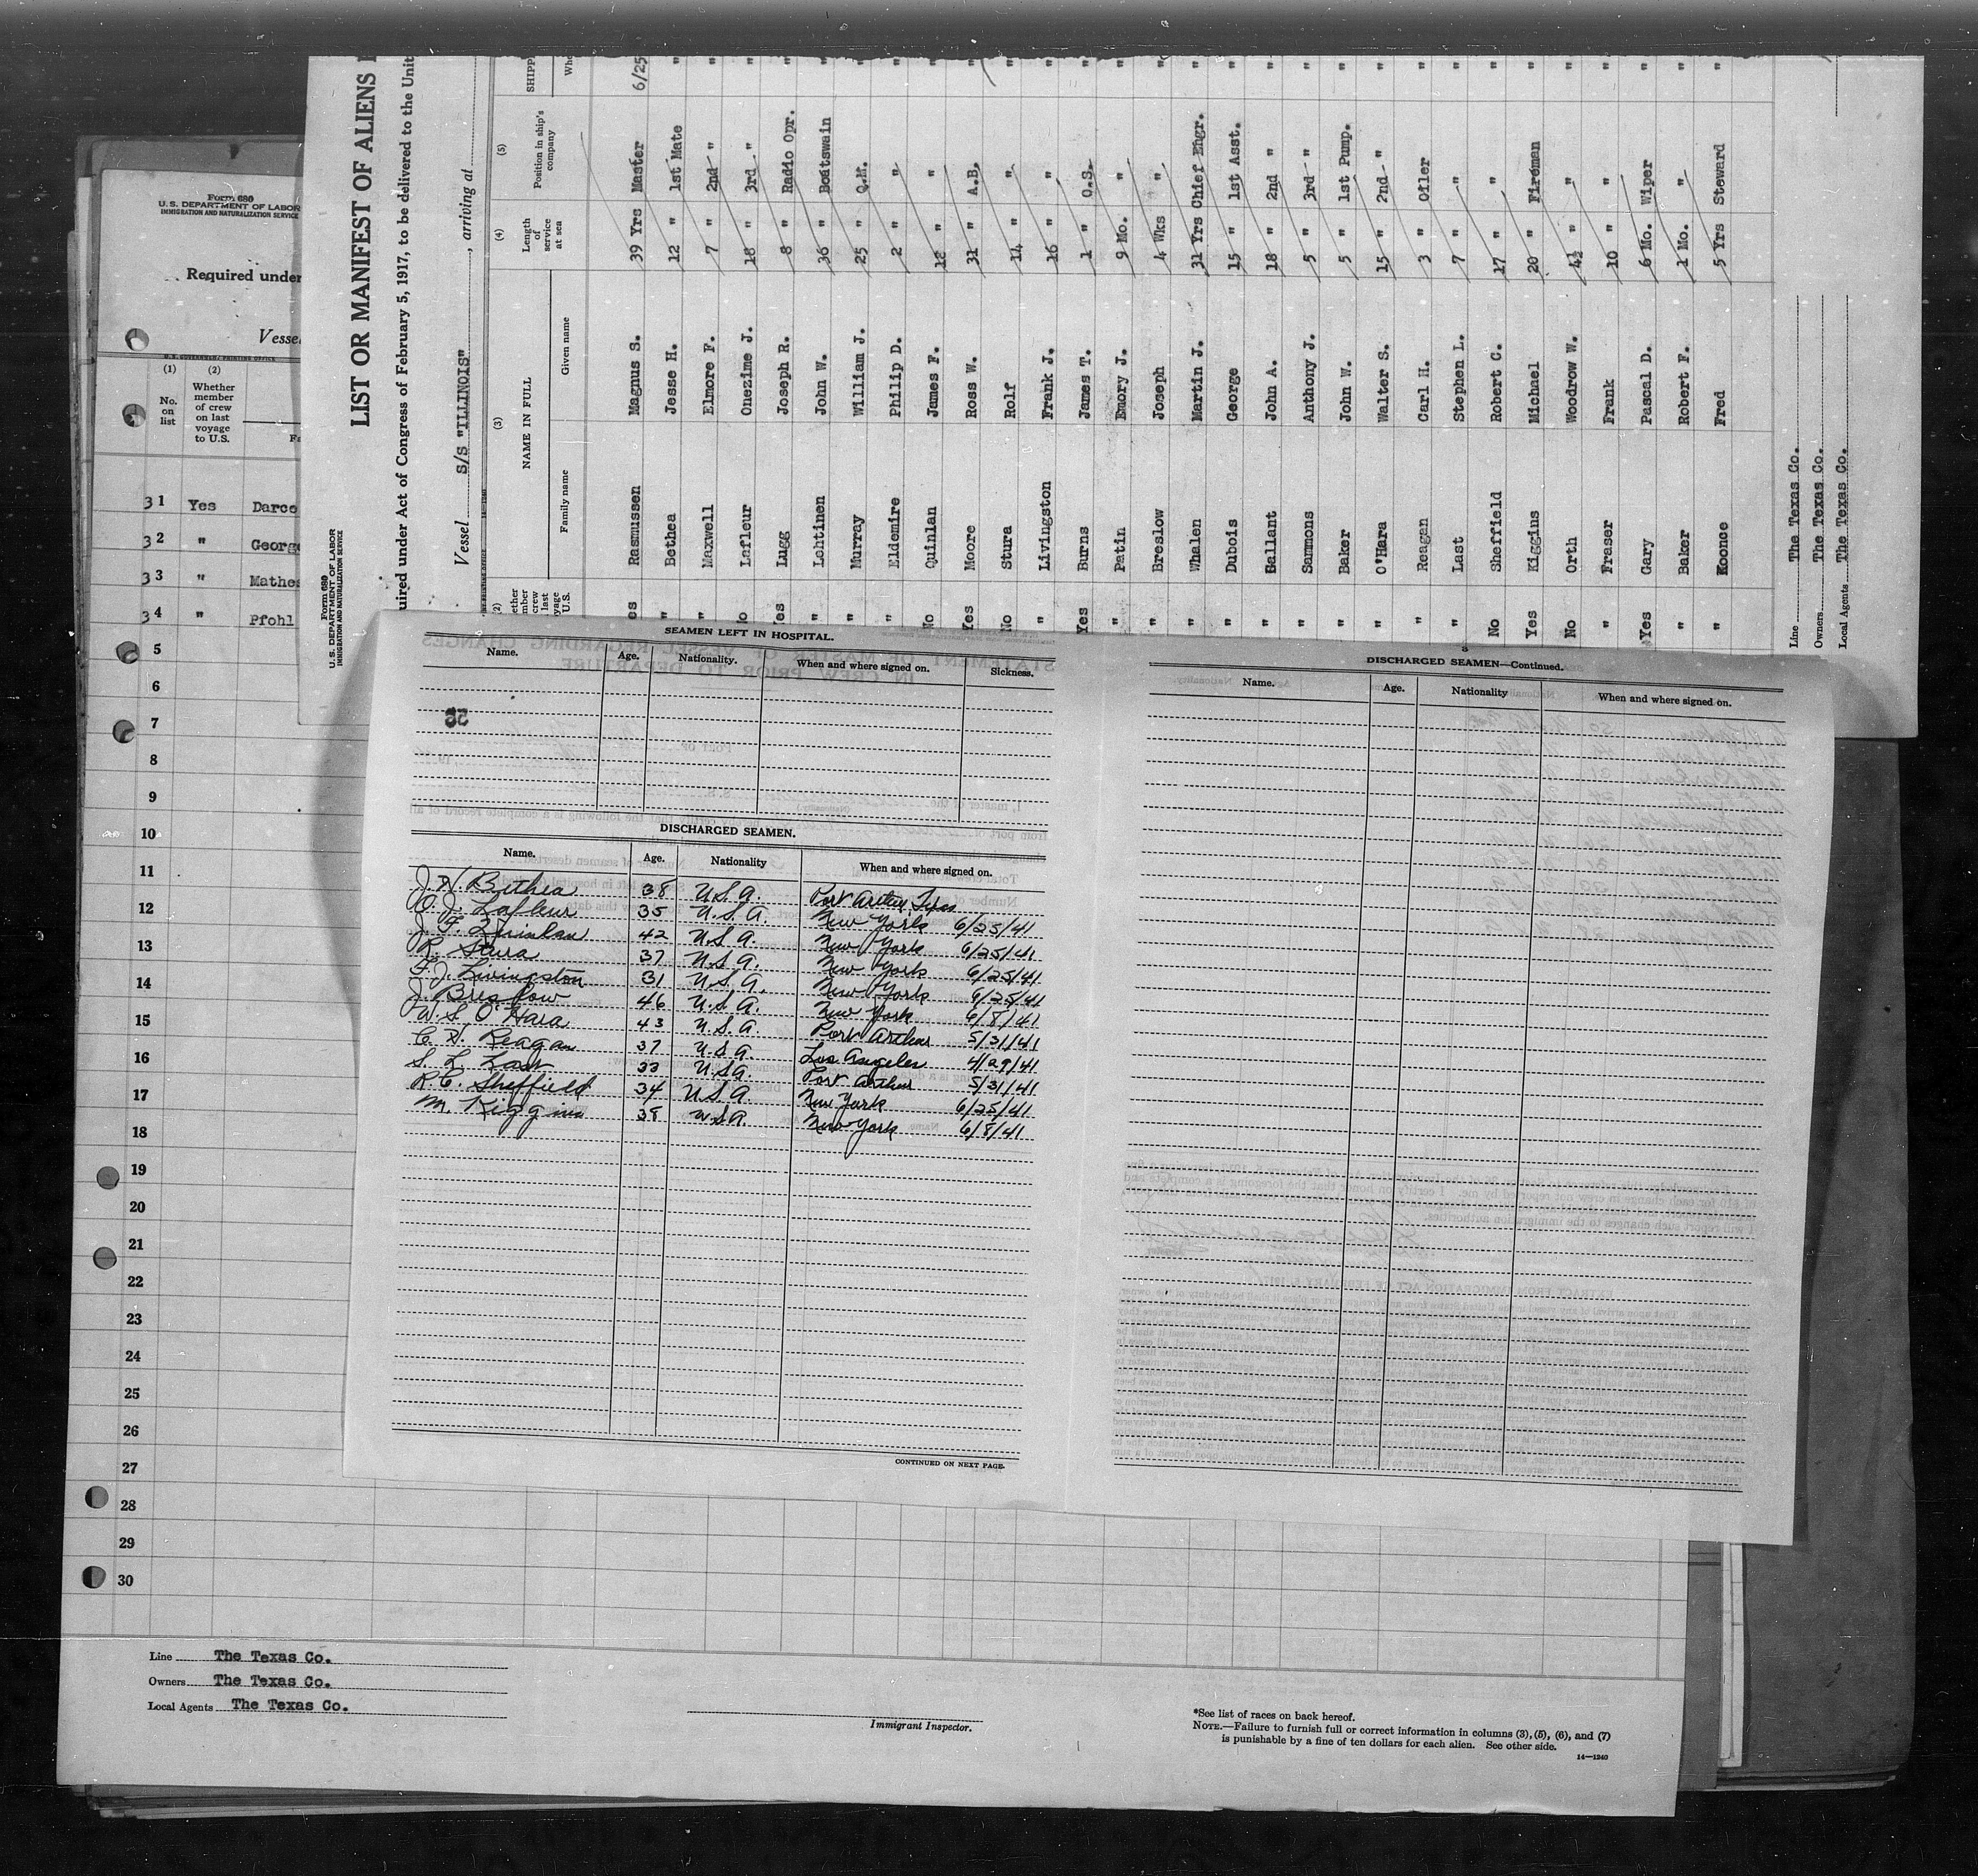 LIST OR MANIFEST OF ALIENS
uired under Act of Congress of February 5, 1917, to be delivered to the Unit
Form 680
U. S. DEPARTMENT OF LABOR
IMMIGRATION AND NATURALIZATION SERVICE
Vessel S/S "ILLINOIS", arriving at
(2) (3) (4) (5)
NAME IN FULL
Family name Given name Length of service at sea Position in ship's company SHIPP
Rasmussen Magnus S. 39 Yrs Master 6/25
" Bethea Jesse H. 12 " 1st Mate "
" Maxwell Elmore F. 7 " 2nd " "
Lafleur Onezime J. 18 " 3rd " "
Lugg Joseph R. 8 " Radio Opr. "
" Lehtinen John W. 36 " Boatswain "
" Murray William J. 25 " Q.M. "
" Eldemire Philip D. 2 " " "
No Quinlan James F. 12 " " "
Yes Moore Ross W. 31 " A.B. "
No Stura Rolf 14 " " "
" Livingston Frank J. 16 " " "
Yes Burns James T. 1 " O.S. "
" Patin Emory J. 9 Mo. " "
" Breslow Joseph 4 Wks " "
" Whalen Martin J. 31 Yrs Chief Engr. "
" Dubois George 15 " 1st Asst. "
" Ballant John A. 18 " 2nd " "
" Sammons Anthony J. 5 " 3rd " "
" Baker John W. 5 " 1st Pump. "
" O'Hara Walter S. 15 " 2nd " "
" Reagan Carl H. 3 " Oiler "
" Last Stephen L. 7 " " "
No Sheffield Robert C. 17 " " "
Yes Kiggins Michael 20 " Fireman "
No Orth Woodrow W. 4½ " " "
" Fraser Frank 10 " " "
Yes Gary Pascal D. 6 Mo. Wiper "
" Baker Robert F. 1 Mo. " "
" Koonce Fred 5 Yrs Steward "
Line The Texas Co.
Owners The Texas Co.
Local Agents The Texas Co.
Form 680
U. S. DEPARTMENT OF LABOR
IMMIGRATION AND NATURALIZATION SERVICE
Required under
Vesse
(1) (2)
No. on list
Whether member of crew on last voyage to U.S.
31 Yes Darco
32 " George
33 " Mathe
34 " Pfohl
5
6
7
8
9
10
11
12
13
14
15
16
17
18
19
20
21
22
23
24
25
26
27
28
29
30
SEAMEN LEFT IN HOSPITAL.
Name. Age. Nationality. When and where signed on. Sickness.
DISCHARGED SEAMEN.
Name. Age. Nationality When and where signed on.
J. H. Bethea 38 U.S.A. Port Arthur, Texas
O. J. Lafleur 35 U.S.A. New York 6/25/41
J. F. Quinlan 42 U.S.A. New York 6/25/41
R. Stura 37 U.S.A. New York 6/25/41
F. J. Livingston 31 U.S.A. New York 6/25/41
J. Breslow 46 U.S.A. New York 6/8/41
W. S. O'Hara 43 U.S.A. Port Arthur 5/31/41
C. H. Reagan 37 U.S.A. Los Angeles 4/29/41
S. L. Last 33 U.S.A. Port Arthur 5/31/41
R. C. Sheffield 34 U.S.A. New York 6/25/41
M. Kiggins 38 U.S.A. New York 6/8/41
CONTINUED ON NEXT PAGE.
DISCHARGED SEAMEN—Continued.
Name. Age. Nationality When and where signed on.
Line The Texas Co.
Owners The Texas Co.
Local Agents The Texas Co.
Immigrant Inspector.
*See list of races on back hereof.
NOTE.—Failure to furnish full or correct information in columns (3), (5), (6), and (7)
is punishable by a fine of ten dollars for each alien. See other side.
14—1240